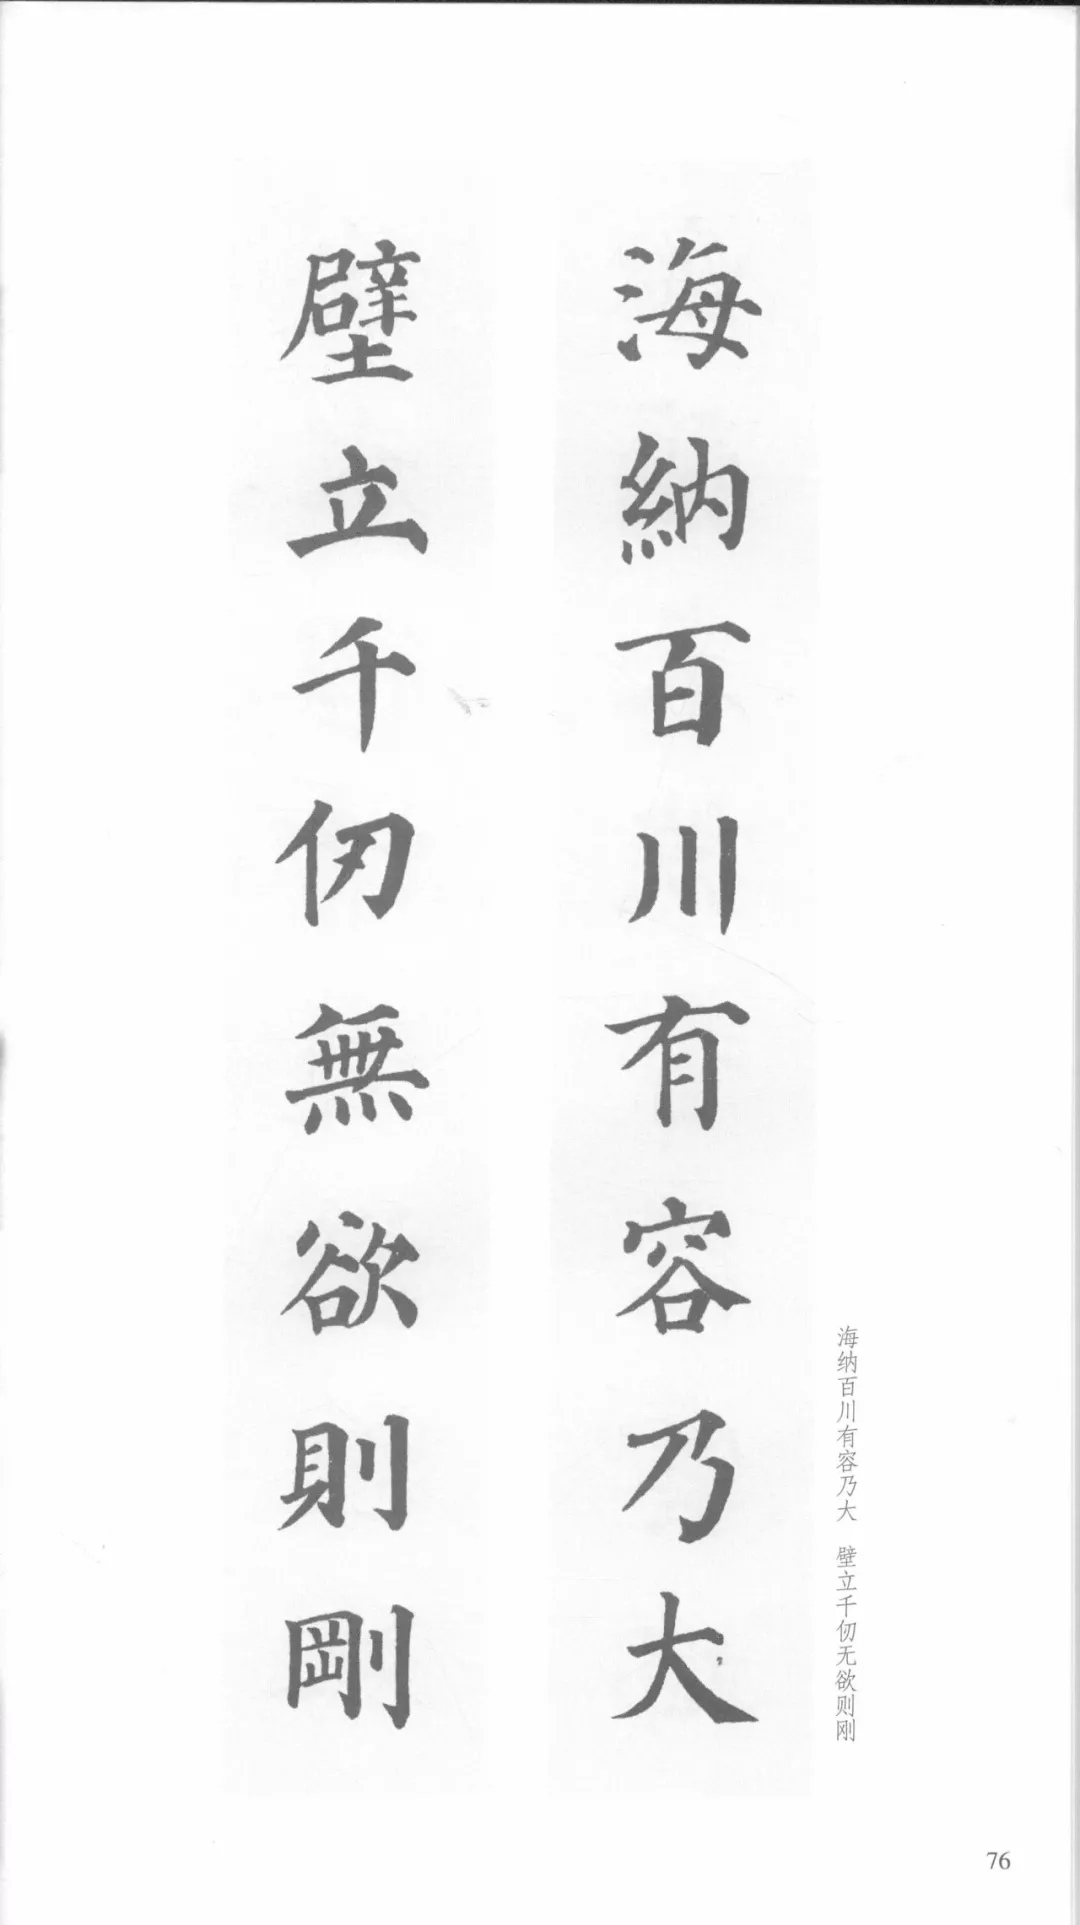 海納百川有容乃大
壁立千仞無欲則剛
海纳百川有容乃大 壁立千仞无欲则刚
76